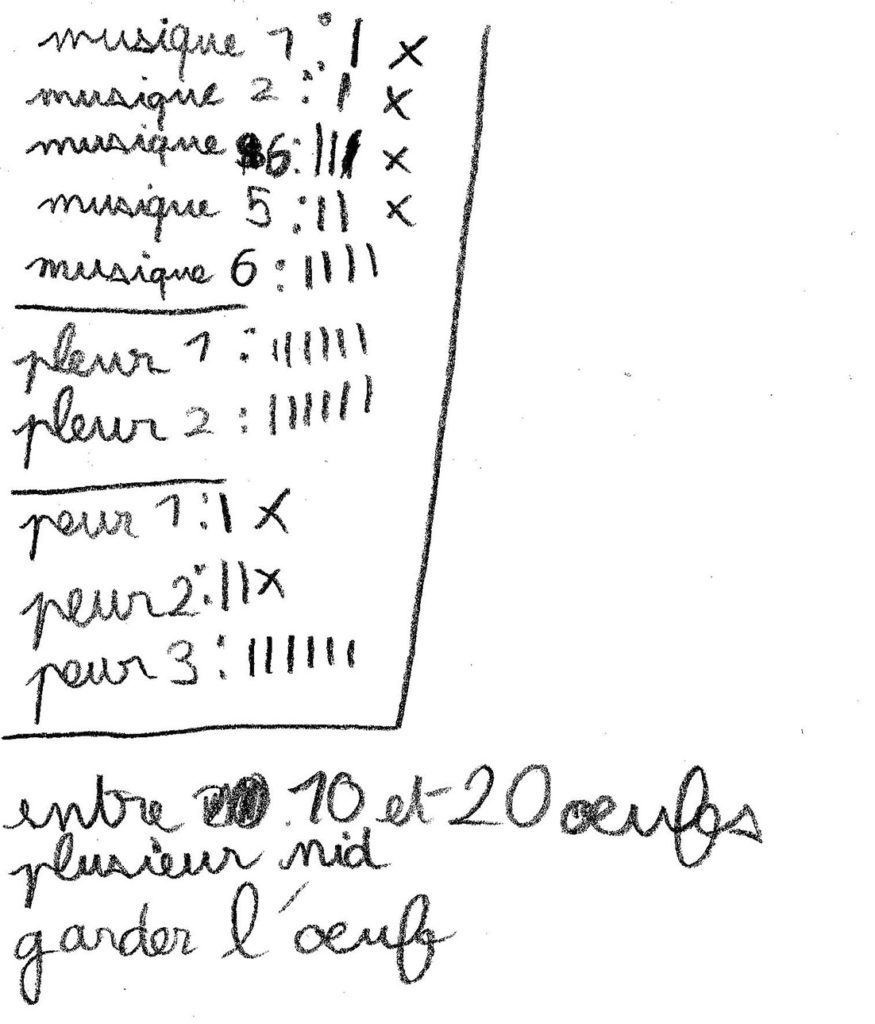 musique 1 : | x
musique 2 : | x
musique 6 : ||| x
musique 5 : || x
musique 6 : ||||
pleur 1 : ||||||
pleur 2 : ||||||
peur 1 : | x
peur 2 : || x
peur 3 : ||||||
entre 10 et 20 oeufs
plusieur nid
garder l'oeuf